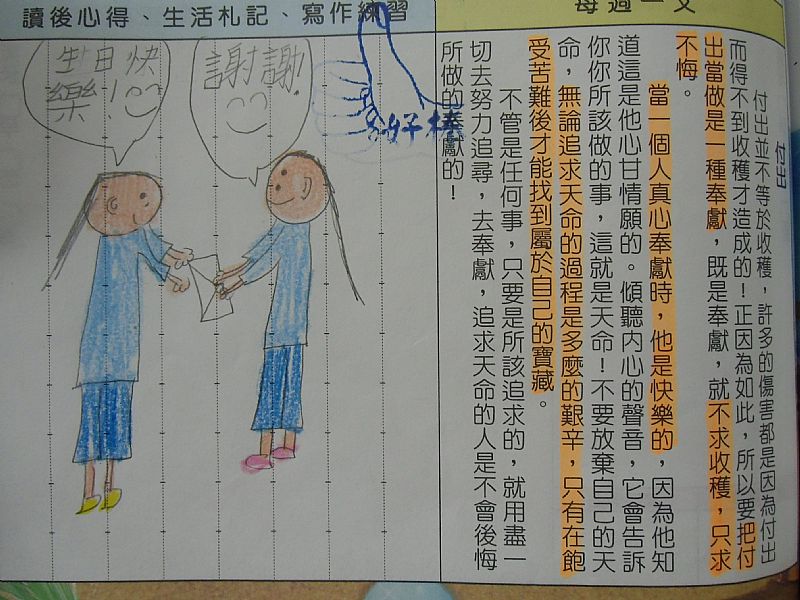 每週一文
付出
付出並不等於收穫，許多的傷害都是因為付出
而得不到收穫才造成的！正因為如此，所以要把付
出當做是一種奉獻，既是奉獻，就不求收穫，只求
不悔。
當一個人真心奉獻時，他是快樂的，因為他知
道這是他心甘情願的。傾聽內心的聲音，它會告訴
你你所該做的事，這就是天命！不要放棄自己的天
命，無論追求天命的過程是多麼的艱辛，只有在飽
受苦難後才能找到屬於自己的寶藏。
不管是任何事，只要是所該追求的，就用盡一
切去努力追尋，去奉獻，追求天命的人是不會後悔
所做的奉獻的！
讀後心得、生活札記、寫作練習
好棒
謝謝!
生日快
樂!